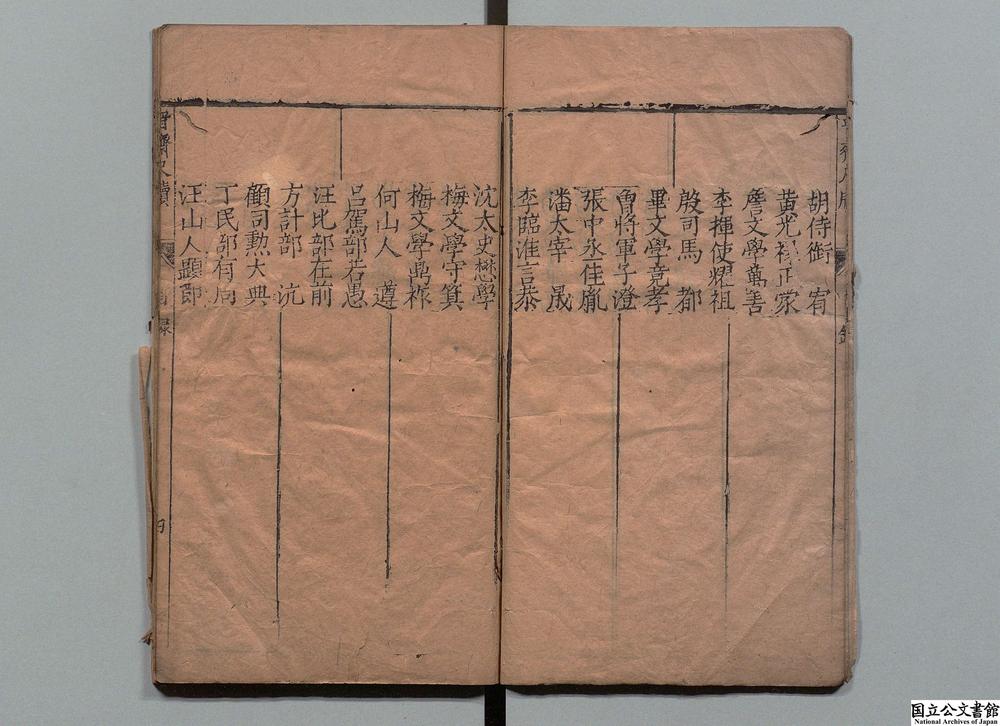 胡侍御 宥
黄光祿正蒙
詹文學萬善
李揮使耀祖
殷司馬 都
畢文學竟孝
曹將軍子澄
張中丞佳胤
潘太宰 晟
李臨淮言恭
沈太史懋學
梅文學守箕
梅文學鼎祚
何山人 遵
呂駕部若愚
汪比部在前
方計部 沆
顧司勲大典
丁民部有周
汪山人顯節
国立公文書館
National Archives of Japan